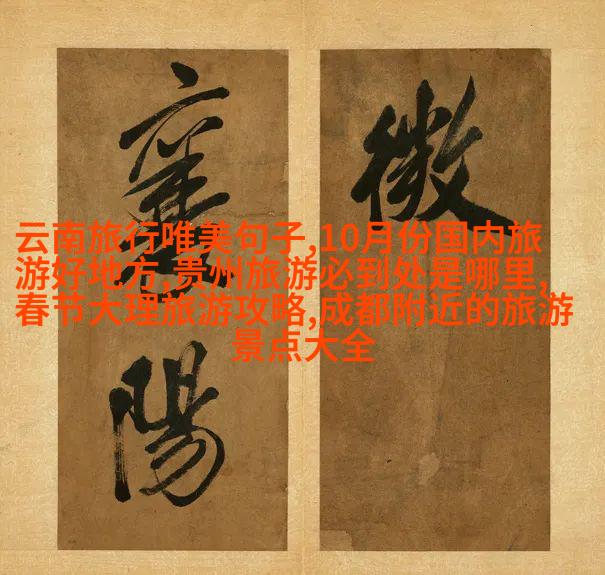 襄陽
云南旅行唯美句子,10月份国内旅
游好地方,贵州旅游必到处是哪里,
春节大理旅游攻略,成都附近的旅游
景点大全